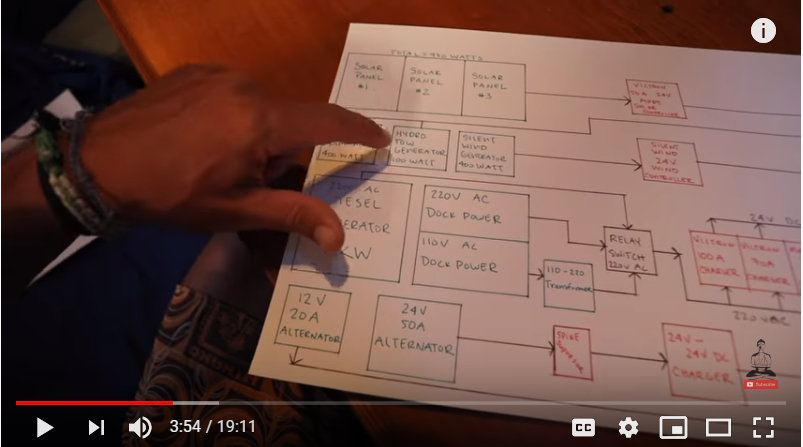 TOTAL = 420 WATTS
SOLAR
PANEL
#1
SOLAR
PANEL
#2
SOLAR
PANEL
#3
VICTRON
MPPT
SOLAR
CONTROLLER
400 WATT
HYDRO
TOW
GENERATOR
WATT
SILENT
WIND
GENERATOR
400 WATT
SILENT
WIND
24V
WIND
CONTROLLER
220V AC
KW
220V AC
DOCK POWER
110V AC
DOCK POWER
110-220
Transformer
RELAY
SWITCH
220V AC
24V DC
VICTRON
100A
CHARGER
VICTRON
70A
CHARGER
220VAC
12V
20A
ALTERNATOR
24V
50A
ALTERNATOR
SPIKE
24V-
24V DC
CHARGER
3:54 / 19:11
CC